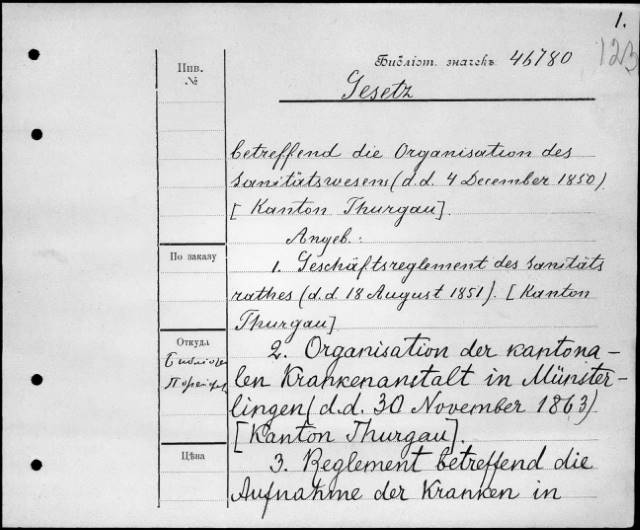 1.
123
Инв.
№
Библіот. значекъ 46780
Gesetz
betreffend die Organisation des
Sanitätswesens (d.d. 4 December 1850)
[Kanton Thurgau].
Angeb.:
По заказу
1. Geschäftsreglement des Sanitäts
rathes (d.d. 18 August 1851). [Kanton
Thurgau]
Откуда
2. Organisation der kantona-
len Krankenanstalt in Münster-
lingen (d.d. 30 November 1863)
[Kanton Thurgau].
Цѣна
3. Reglement betreffend die
Aufnahme der Kranken in